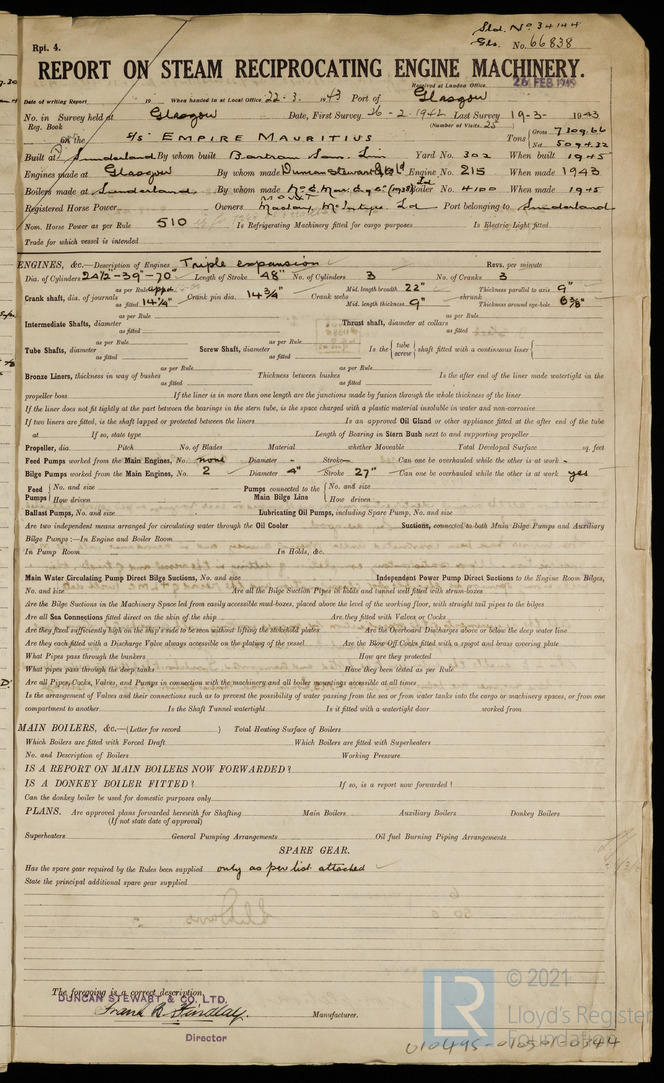 Sld. No 34144
Rpt. 4. Gls. No. 66838
REPORT ON STEAM RECIPROCATING ENGINE MACHINERY.
Received at London Office 26 FEB 1945
Date of writing Report 19 When handed in at Local Office 22-3. 1943 Port of Glasgow
No. in Survey held at Glasgow Date, First Survey 26-2-1942 Last Survey 19-3- 1943
Reg. Book (Number of Visits 25)
on the S/S EMPIRE MAURITIUS Tons Gross 7309.66
Net 5094.32
Built at Sunderland By whom built Bartram Sons Lim Yard No. 302 When built 1945
Engines made at Glasgow By whom made Duncan Stewart & Co Ld Engine No. 215 When made 1943
Boilers made at Sunderland By whom made N.E. Mar. Eng Co. (1938) Ltd Boiler No. 4100 When made 1945
Registered Horse Power Owners Maclay, McIntyre Ld Port belonging to Sunderland
Nom. Horse Power as per Rule 510 Is Refrigerating Machinery fitted for cargo purposes Is Electric Light fitted
Trade for which vessel is intended
ENGINES, &c.—Description of Engines Triple expansion Revs. per minute
Dia. of Cylinders 24½"-39"-70" Length of Stroke 48" No. of Cylinders 3 No. of Cranks 3
Crank shaft, dia. of journals as per Rule appd. as fitted 14¼" Crank pin dia. 14¾" Crank webs Mid. length breadth 22" Mid. length thickness 9" shrunk Thickness parallel to axis 9" Thickness around eye-hole 6⅝"
Intermediate Shafts, diameter as per Rule as fitted Thrust shaft, diameter at collars as per Rule as fitted
Tube Shafts, diameter as per Rule as fitted Screw Shaft, diameter as per Rule as fitted Is the { tube screw } shaft fitted with a continuous liner {
Bronze Liners, thickness in way of bushes as per Rule as fitted Thickness between bushes as per Rule as fitted Is the after end of the liner made watertight in the
propeller boss If the liner is in more than one length are the junctions made by fusion through the whole thickness of the liner
If the liner does not fit tightly at the part between the bearings in the stern tube, is the space charged with a plastic material insoluble in water and non-corrosive
If two liners are fitted, is the shaft lapped or protected between the liners Is an approved Oil Gland or other appliance fitted at the after end of the tube
at If so, state type Length of Bearing in Stern Bush next to and supporting propeller
Propeller, dia. Pitch No. of Blades Material whether Moveable Total Developed Surface sq. feet
Feed Pumps worked from the Main Engines, No. none Diameter - Stroke - Can one be overhauled while the other is at work -
Bilge Pumps worked from the Main Engines, No. 2 Diameter 4" Stroke 27" Can one be overhauled while the other is at work yes
Feed Pumps { No. and size How driven Pumps connected to the Main Bilge Line { No. and size How driven
Ballast Pumps, No. and size Lubricating Oil Pumps, including Spare Pump, No. and size
Are two independent means arranged for circulating water through the Oil Cooler Suctions, connected to both Main Bilge Pumps and Auxiliary
Bilge Pumps :—In Engine and Boiler Room
In Pump Room In Holds, &c.
Main Water Circulating Pump Direct Bilge Suctions, No. and size Independent Power Pump Direct Suctions to the Engine Room Bilges,
No. and size Are all the Bilge Suction Pipes in holds and tunnel well fitted with strum-boxes
Are the Bilge Suctions in the Machinery Space led from easily accessible mud-boxes, placed above the level of the working floor, with straight tail pipes to the bilges
Are all Sea Connections fitted direct on the skin of the ship Are they fitted with Valves or Cocks
Are they fixed sufficiently high on the ship's side to be seen without lifting the stokehold plates Are the Overboard Discharges above or below the deep water line
Are they each fitted with a Discharge Valve always accessible on the plating of the vessel Are the Blow Off Cocks fitted with a spigot and brass covering plate
What Pipes pass through the bunkers How are they protected
What pipes pass through the deep tanks Have they been tested as per Rule
Are all Pipes, Cocks, Valves, and Pumps in connection with the machinery and all boiler mountings accessible at all times
Is the arrangement of Valves and their connections such as to prevent the possibility of water passing from the sea or from water tanks into the cargo or machinery spaces, or from one
compartment to another Is the Shaft Tunnel watertight Is it fitted with a watertight door worked from
MAIN BOILERS, &c.—(Letter for record ) Total Heating Surface of Boilers
Which Boilers are fitted with Forced Draft Which Boilers are fitted with Superheaters
No. and Description of Boilers Working Pressure
IS A REPORT ON MAIN BOILERS NOW FORWARDED?
IS A DONKEY BOILER FITTED? If so, is a report now forwarded?
Can the donkey boiler be used for domestic purposes only
PLANS. Are approved plans forwarded herewith for Shafting Main Boilers Auxiliary Boilers Donkey Boilers
(If not state date of approval)
Superheaters General Pumping Arrangements Oil fuel Burning Piping Arrangements
SPARE GEAR.
Has the spare gear required by the Rules been supplied only as per list attached
State the principal additional spare gear supplied
The foregoing is a correct description,
DUNCAN STEWART & CO. LTD.
Frank R. Findlay. Manufacturer.
Director
LR © 2021
Lloyd's Register
Foundation
010495-010501-0344